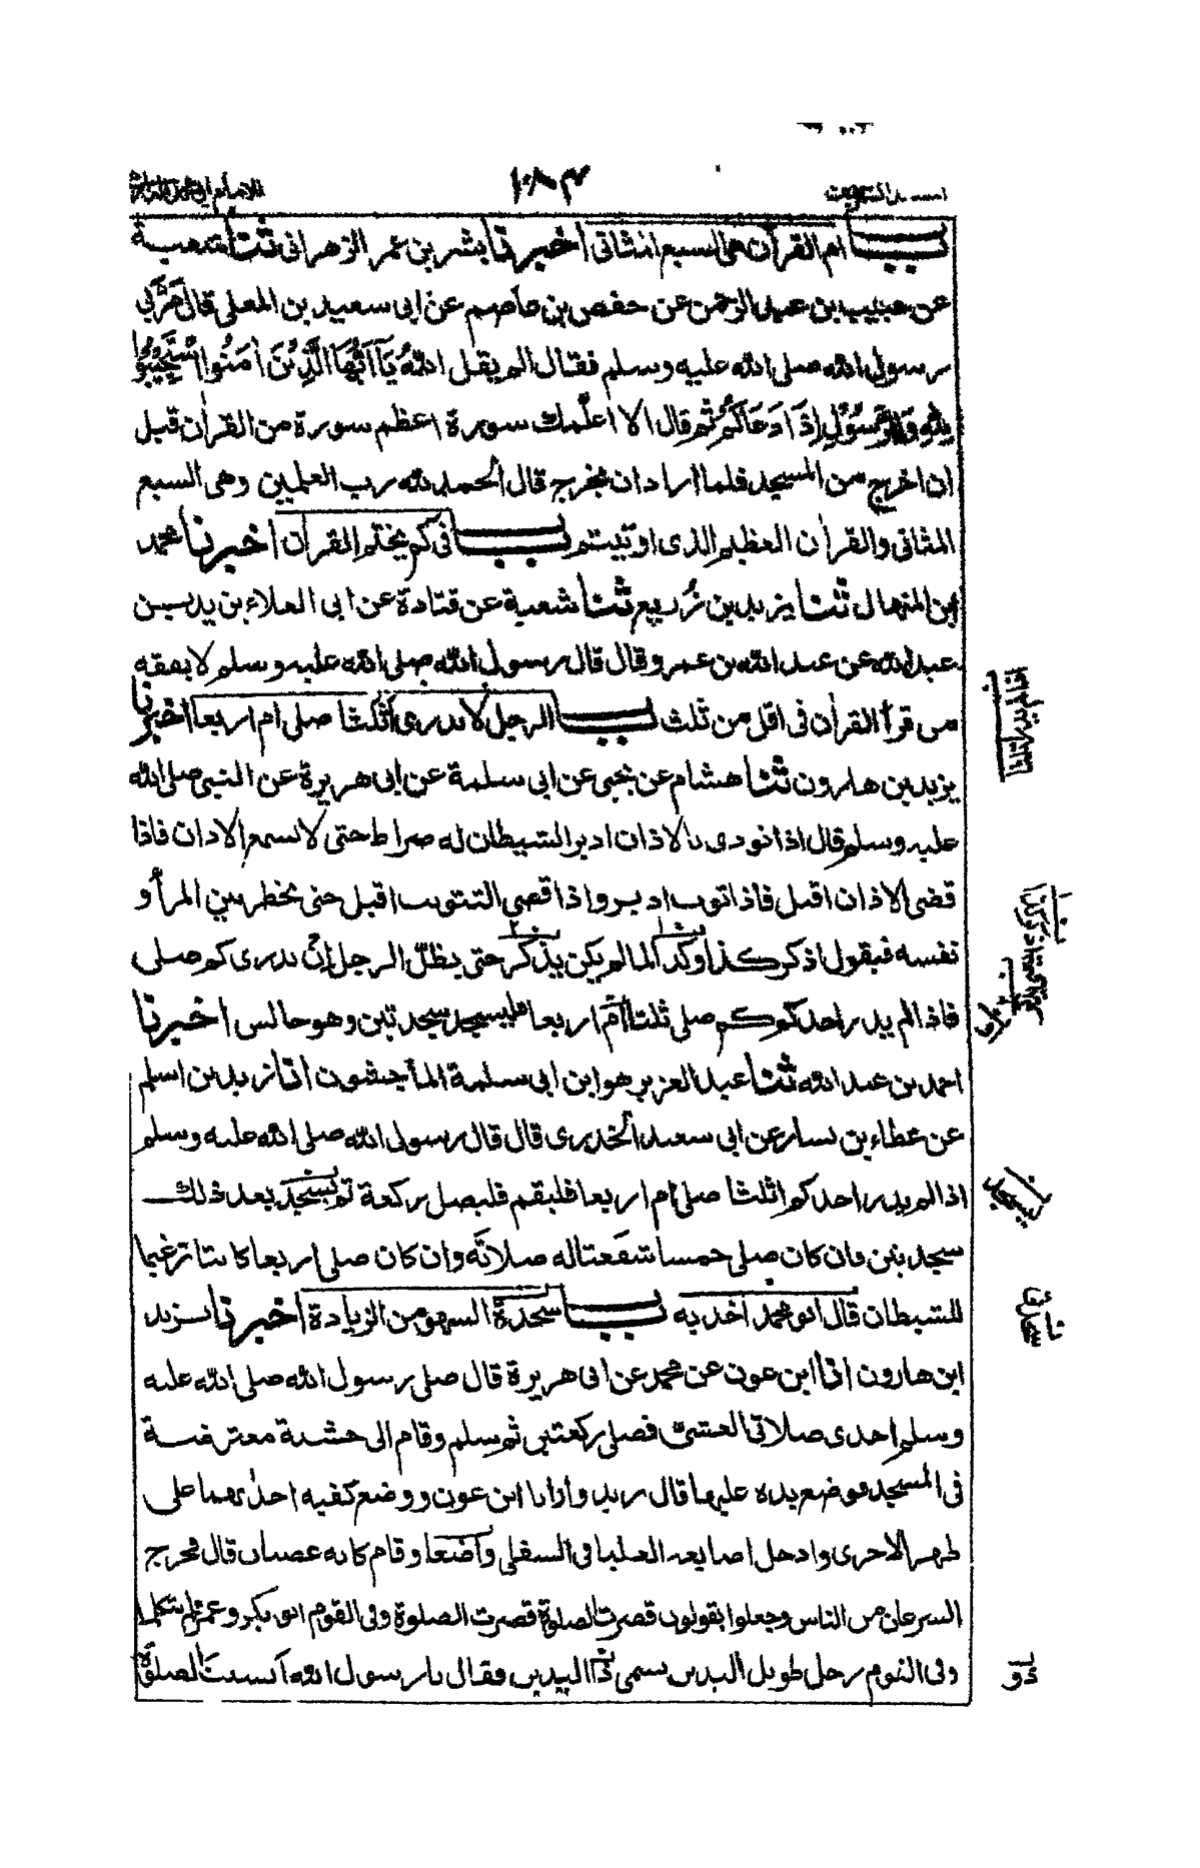 ١٠٨٣
باب ام القرآن هى السبع المثانى اخبرنا بشر بن عمر الزهرانى ثنا شعبة
عن خبيب بن عبد الرحمن عن حفص بن عاصم عن ابى سعيد بن المعلى قال مَرَّ بى
رسول الله صلى الله عليه وسلم فقال الم يقل اللهُ يَآ اَيُّهَا الَّذِيْنَ اٰمَنُوا اسْتَجِيْبُوْا
لِلّٰهِ وَلِلرَّسُوْلِ اِذَا دَعَاكُمْ ثم قال الا اعلّمك سورة اعظم سورة من القراٰن قبل
ان اخرج من المسجد فلما اراد ان يخرج قال الحمد لله رب العلمين وهى السبع
المثانى والقراٰن العظيم الذى اوتيتم باب فى كم يختم القراٰن اخبرنا محمد
ابن المنهال ثنا يزيد بن زُريع ثنا شعبة عن قتادة عن ابى العلاء بن يزيد بن
عبد الله عن عبد الله بن عمرو قال قال رسول الله صلى الله عليه وسلم لا يفقه
من قرأ القراٰن فى اقل من ثلث باب الرجل لا يدرى أثلثا صلى ام اربعا اخبرنا
يزيد بن هارون ثنا هشام عن يحيى عن ابى سلمة عن ابى هريرة عن النبى صلى الله
عليه وسلم قال اذا نودى بالاذان ادبر الشيطان له ضراط حتى لا يسمع الاذان فاذا
قضى الاذان اقبل فاذا ثوب ادبر واذا قضى التثويب اقبل حتى يخطر بين المرأ و
نفسه فيقول اذكر كذا وكذا لما لم يكن يذكر حتى يظلّ الرجل إنْ يدرى كم صلى
فاذا لم يدر احدكم كم صلى ثلثا أم اربعا فليسجد سجدتين وهو جالس اخبرنا
احمد بن عبد الله ثنا عبد العزيز هو ابن ابى سلمة الماجشون انا زيد بن اسلم
عن عطاء بن يسار عن ابى سعيد الخدرى قال قال رسول الله صلى الله عليه وسلم
اذا لم يدر احدكم اثلثا صلى ام اربعا فليقم فليصل ركعة ثم يسجد بعد ذلك
سجدتين فان كان صلى خمسا شفعتا له صلاته وان كان صلى اربعا كانتا ترغيما
للشيطان قال ابو محمد اٰخذ به باب سجدة السهو من الزيادة اخبرنا يزيد
ابن هارون انا ابن عون عن محمد عن ابى هريرة قال صلى رسول الله صلى الله عليه
وسلم احدى صلاتى العشىّ فصلى ركعتين ثم سلم وقام الى خشبة معترضة
فى المسجد فوضع يده عليها قال يزيد وارانا ابن عون ووضع كفيه احدٰيهما على
ظهر الاخرى وادخل اصابعه العليا فى السفلى واضعا وقام كانه غضبان قال فخرج
السرعان من الناس وجعلوا يقولون قصرت الصلوة قصرت الصلوة وفى القوم ابو بكر وعمر فلم يتكلما
وفى القوم رجل طويل اليدين يسمى ذا اليدين فقال يا رسول الله أنسيت الصلوة